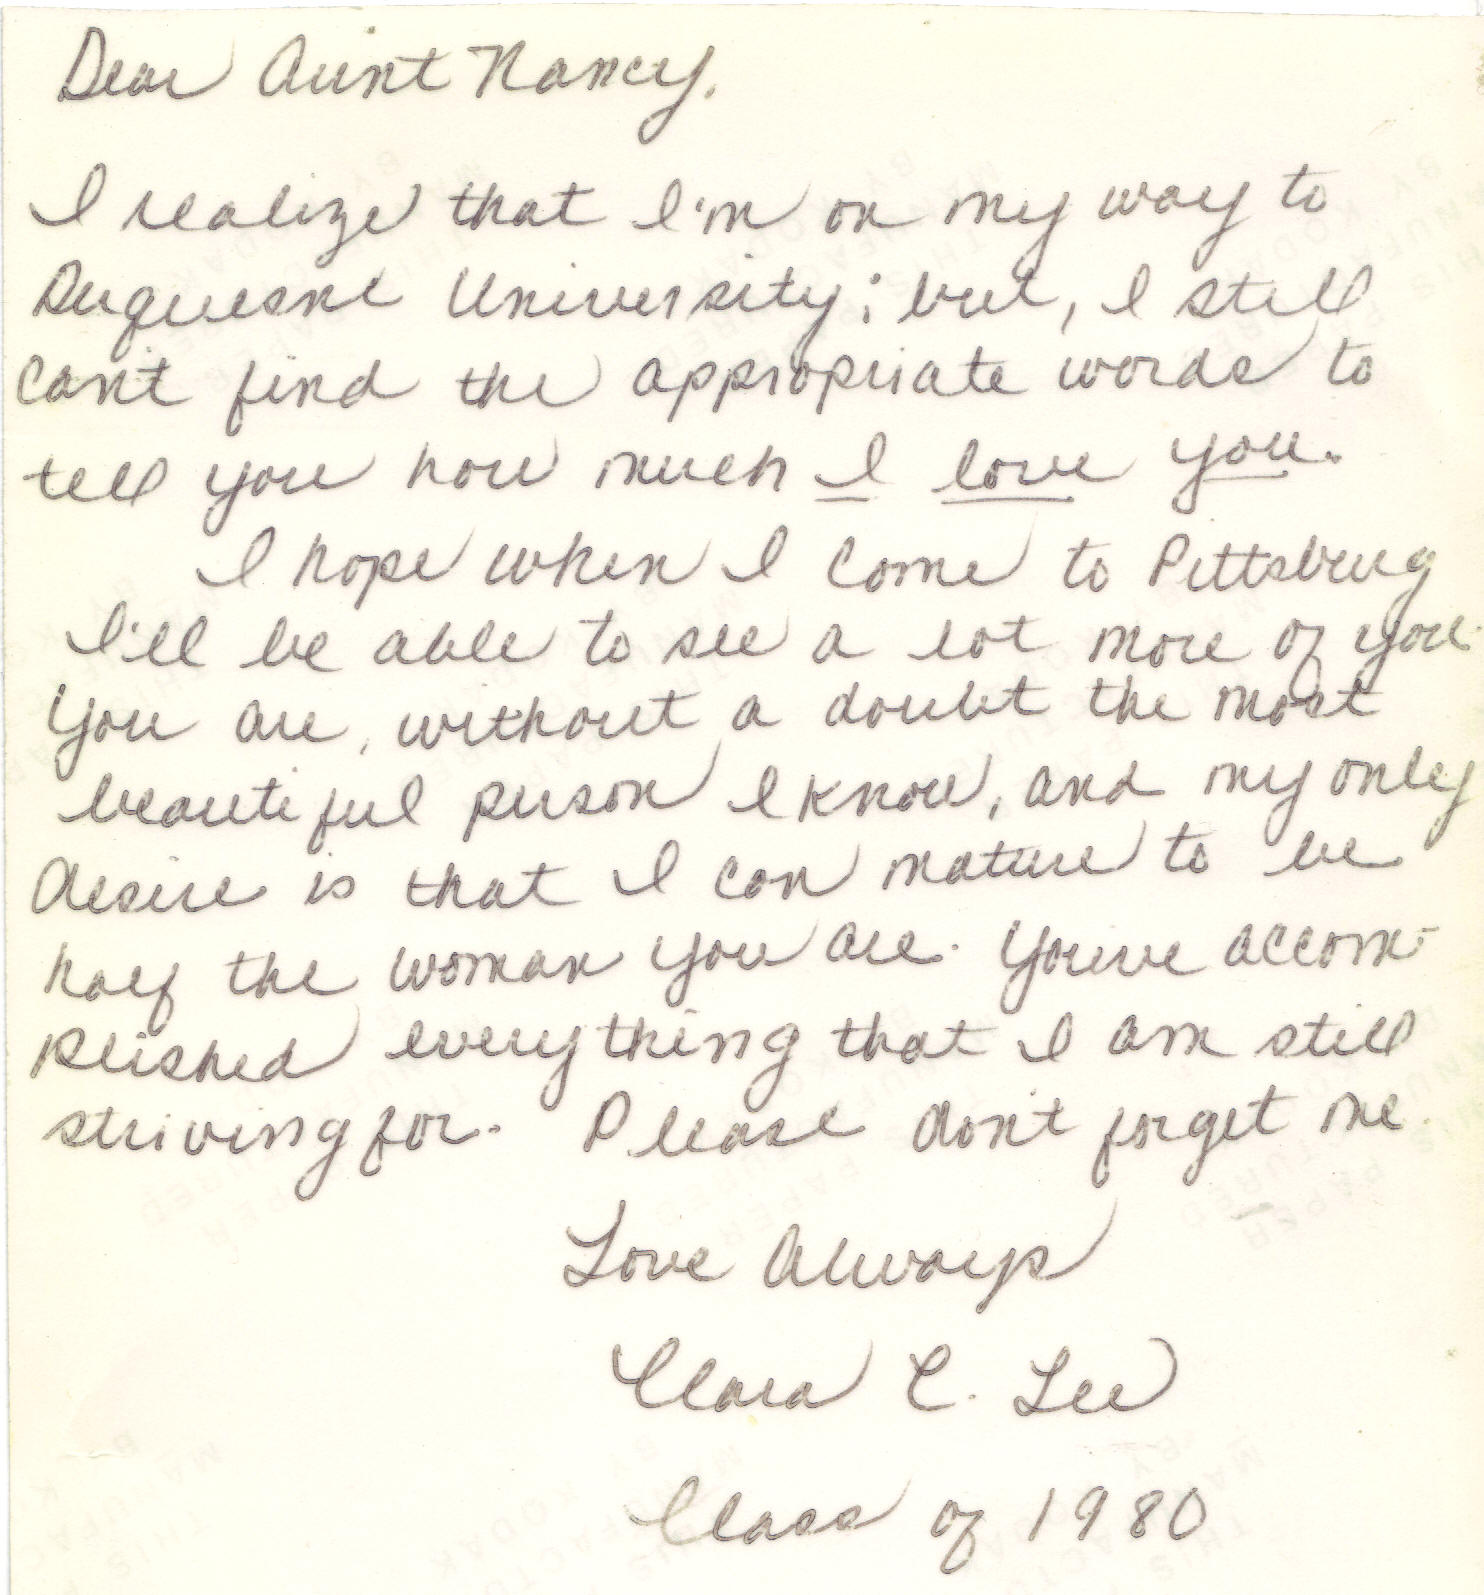 Dear Aunt Nancy,
I realize that I'm on my way to
Duquesne University; but, I still
can't find the appropriate words to
tell you how much I love you.
I hope when I come to Pittsburg
I'll be able to see a lot more of you.
You are, without a doubt the most
beautiful person I know, and my only
desire is that I can mature to be
half the woman you are. You've accom-
plished everything that I am still
striving for. Please don't forget me.
Love Always
Clara C. Lee
Class of 1980